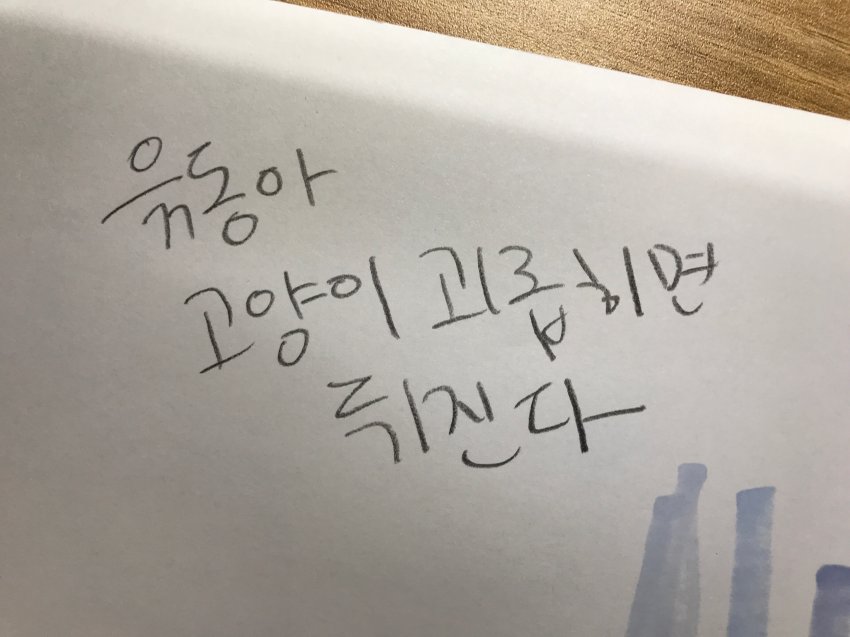 육동아
고양이 괴롭히면
뒤진다